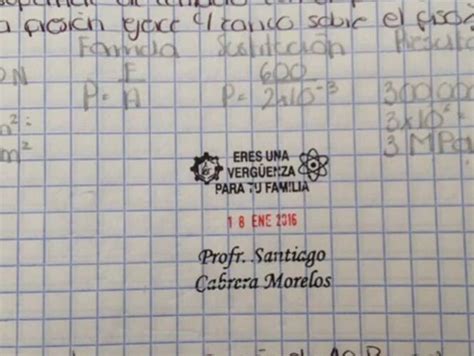 presión ejerce el banco sobre el piso
Formula Sustitución
F 600
P= A P= 2x10-3 300,000
3x10
m2 3 MPa
ERES UNA
VERGÜENZA
PARA TU FAMILIA
18 ENE 2016
Profr. Santiago
Cabrera Morelos